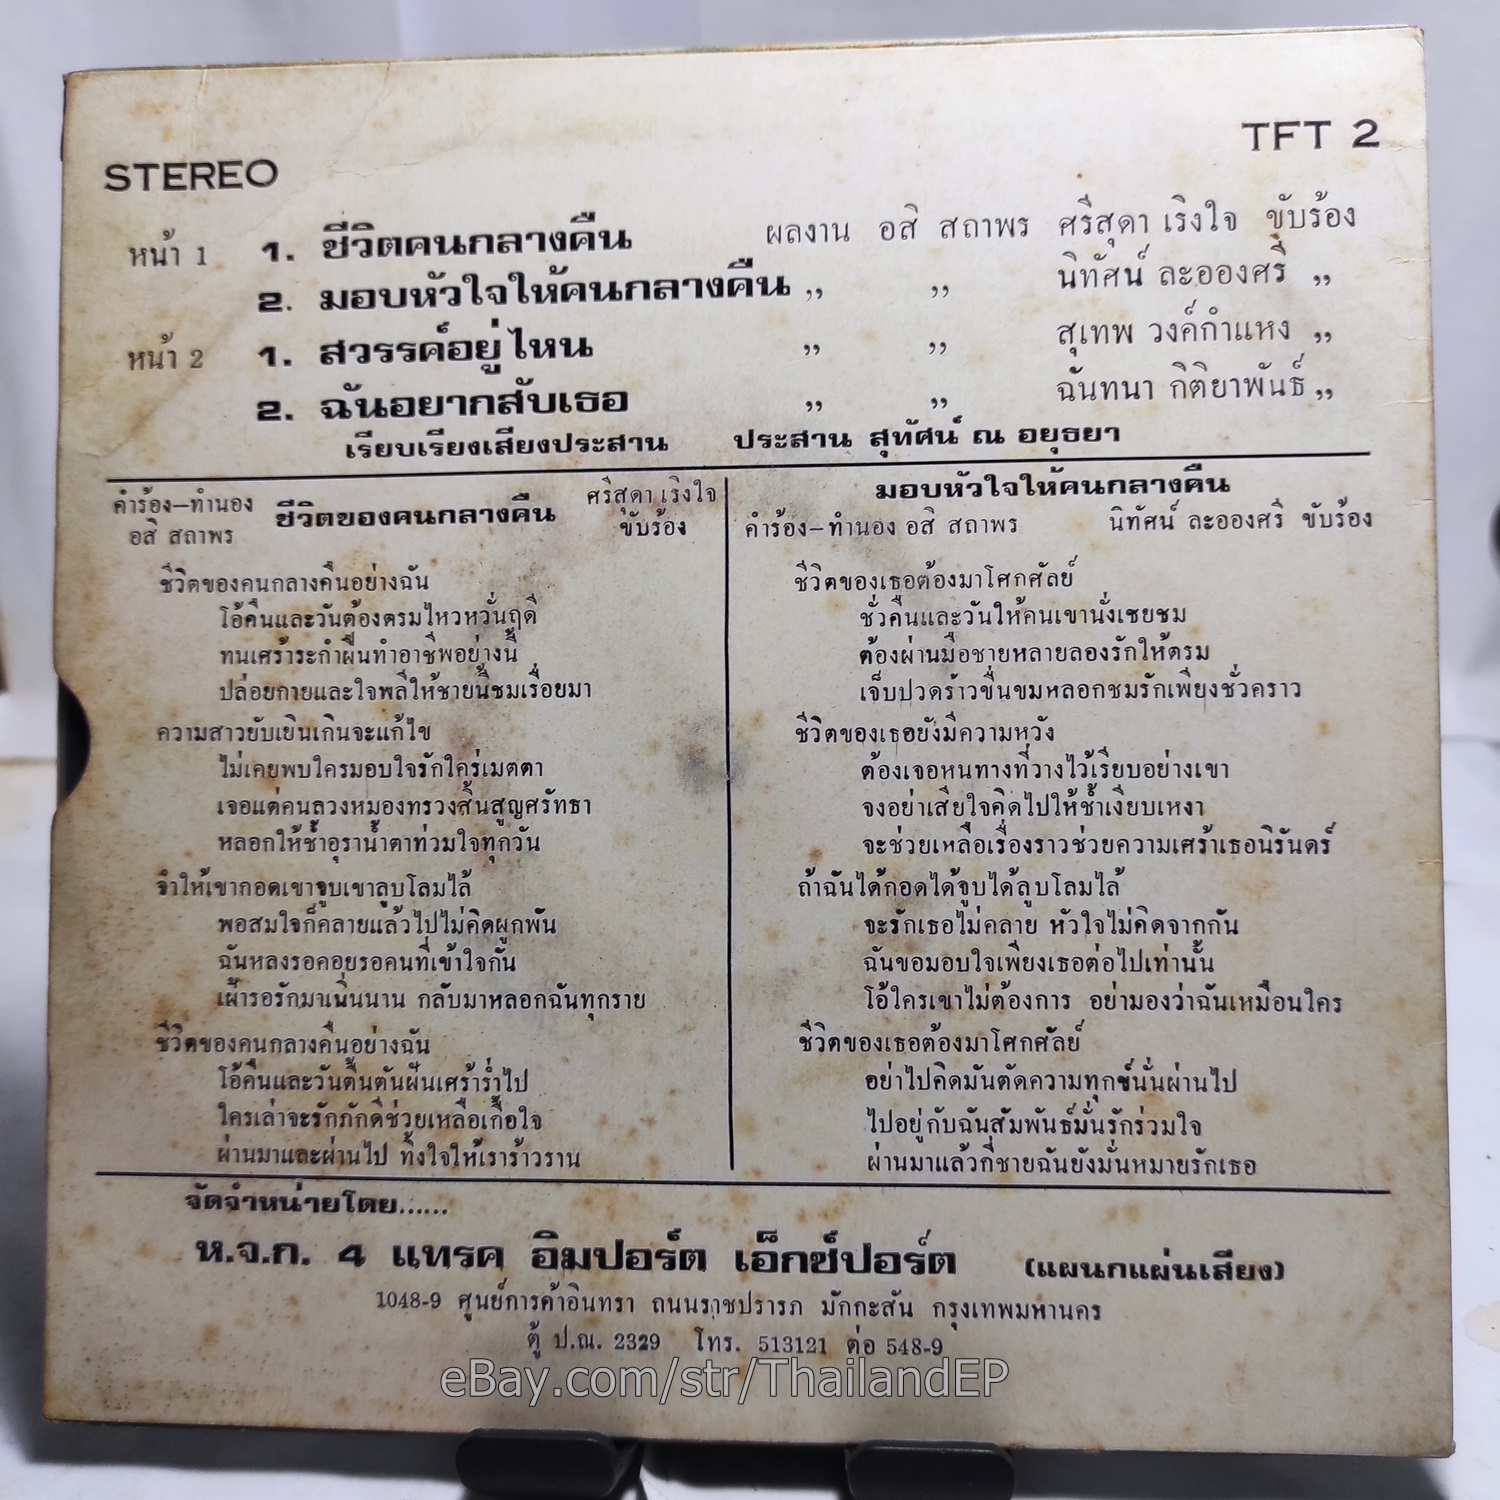 STEREO
TFT 2
หน้า 1 1. ชีวิตคนกลางคืน ผลงาน อสิ สถาพร ศรีสุดา เริงใจ ขับร้อง
2. มอบหัวใจให้คนกลางคืน ,, ,, นิทัศน์ ละอองศรี ,,
หน้า 2 1. สวรรค์อยู่ไหน ,, ,, สุเทพ วงค์กำแหง ,,
2. ฉันอยากสับเธอ ,, ,, ฉันทนา กิติยาพันธ์ ,,
เรียบเรียงเสียงประสาน ประสาน สุทัศน์ ณ อยุธยา
คำร้อง–ทำนอง
อสิ สถาพร
ชีวิตของคนกลางคืน
ศรีสุดา เริงใจ
ขับร้อง
ชีวิตของคนกลางคืนอย่างฉัน
โอ้คืนและวันต้องตรมไหวหวั่นฤดี
ทนเศร้าระกำฝืนทำอาชีพอย่างนี้
ปล่อยกายและใจพลีให้ชายนี้ชมเรื่อยมา
ความสาวยับเยินเกินจะแก้ไข
ไม่เคยพบใครมอบใจรักใคร่เมตตา
เจอแต่คนลวงหมองทรวงสิ้นสูญศรัทธา
หลอกให้ช้ำอุราน้ำตาท่วมใจทุกวัน
จำให้เขากอดเขาจูบเขาลูบโลมไล้
พอสมใจก็คลายแล้วไปไม่คิดผูกพัน
ฉันหลงรอคอยรอคนที่เข้าใจกัน
เฝ้ารอรักมาเนิ่นนาน กลับมาหลอกฉันทุกราย
ชีวิตของคนกลางคืนอย่างฉัน
โอ้คืนและวันตื้นตันฝืนเศร้าร่ำไป
ใครเล่าจะรักภักดีช่วยเหลือเกื้อใจ
ผ่านมาและผ่านไป ทิ้งใจให้เราร้าวราน
มอบหัวใจให้คนกลางคืน
คำร้อง–ทำนอง อสิ สถาพร นิทัศน์ ละอองศรี ขับร้อง
ชีวิตของเธอต้องมาโศกศัลย์
ชั่วคืนและวันให้คนเขานั่งเชยชม
ต้องผ่านมือชายหลายลองรักให้ตรม
เจ็บปวดร้าวขื่นขมหลอกชมรักเพียงชั่วคราว
ชีวิตของเธอยังมีความหวัง
ต้องเจอหนทางที่วางไว้เรียบอย่างเขา
จงอย่าเสียใจคิดไปให้ช้ำเงียบเหงา
จะช่วยเหลือเรื่องราวช่วยความเศร้าเธอนิรันดร์
ถ้าฉันได้กอดได้จูบได้ลูบโลมไล้
จะรักเธอไม่คลาย หัวใจไม่คิดจากกัน
ฉันขอมอบใจเพียงเธอต่อไปเท่านั้น
โอ้ใครเขาไม่ต้องการ อย่ามองว่าฉันเหมือนใคร
ชีวิตของเธอต้องมาโศกศัลย์
อย่าไปคิดมันตัดความทุกข์นั่นผ่านไป
ไปอยู่กับฉันสัมพันธ์มั่นรักร่วมใจ
ผ่านมาแล้วกี่ชายฉันยังมั่นหมายรักเธอ
จัดจำหน่ายโดย......
ห.จ.ก. 4 แทรค อิมปอร์ต เอ็กซ์ปอร์ต (แผนกแผ่นเสียง)
1048-9 ศูนย์การค้าอินทรา ถนนราชปรารภ มักกะสัน กรุงเทพมหานคร
ตู้ ป.ณ. 2329 โทร. 513121 ต่อ 548-9
eBay.com/str/ThailandEP